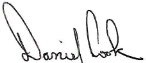 Daniel Cook